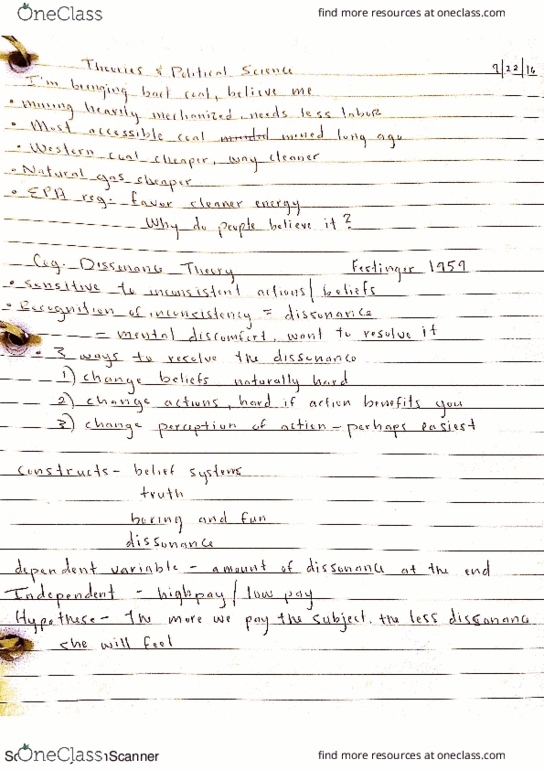 OneClass
find more resources at oneclass.com
Theories & Political Science 9/22/16
I'm bringing back coal, believe me
• mining heavily mechanized, needs less labor
• Most accessible coal mined long ago
• Western coal cheaper, way cleaner
• Natural gas cheaper
• EPA reg: favor cleaner energy
Why do people believe it?
Cog. Dissonance Theory Festinger 1959
• sensitive to inconsistent actions/beliefs
• Recognition of inconsistency = dissonance
= mental discomfort, want to resolve it
• 3 ways to resolve the dissonance
1) change beliefs naturally hard
2) change actions, hard if action benefits you
3) change perception of action - perhaps easiest
Constructs - belief systems
truth
boring and fun
dissonance
dependent variable - amount of dissonance at the end
Independent - high pay / low pay
Hypothese - The more we pay the subject, the less dissonance
she will feel
OneClass
Scanner
find more resources at oneclass.com